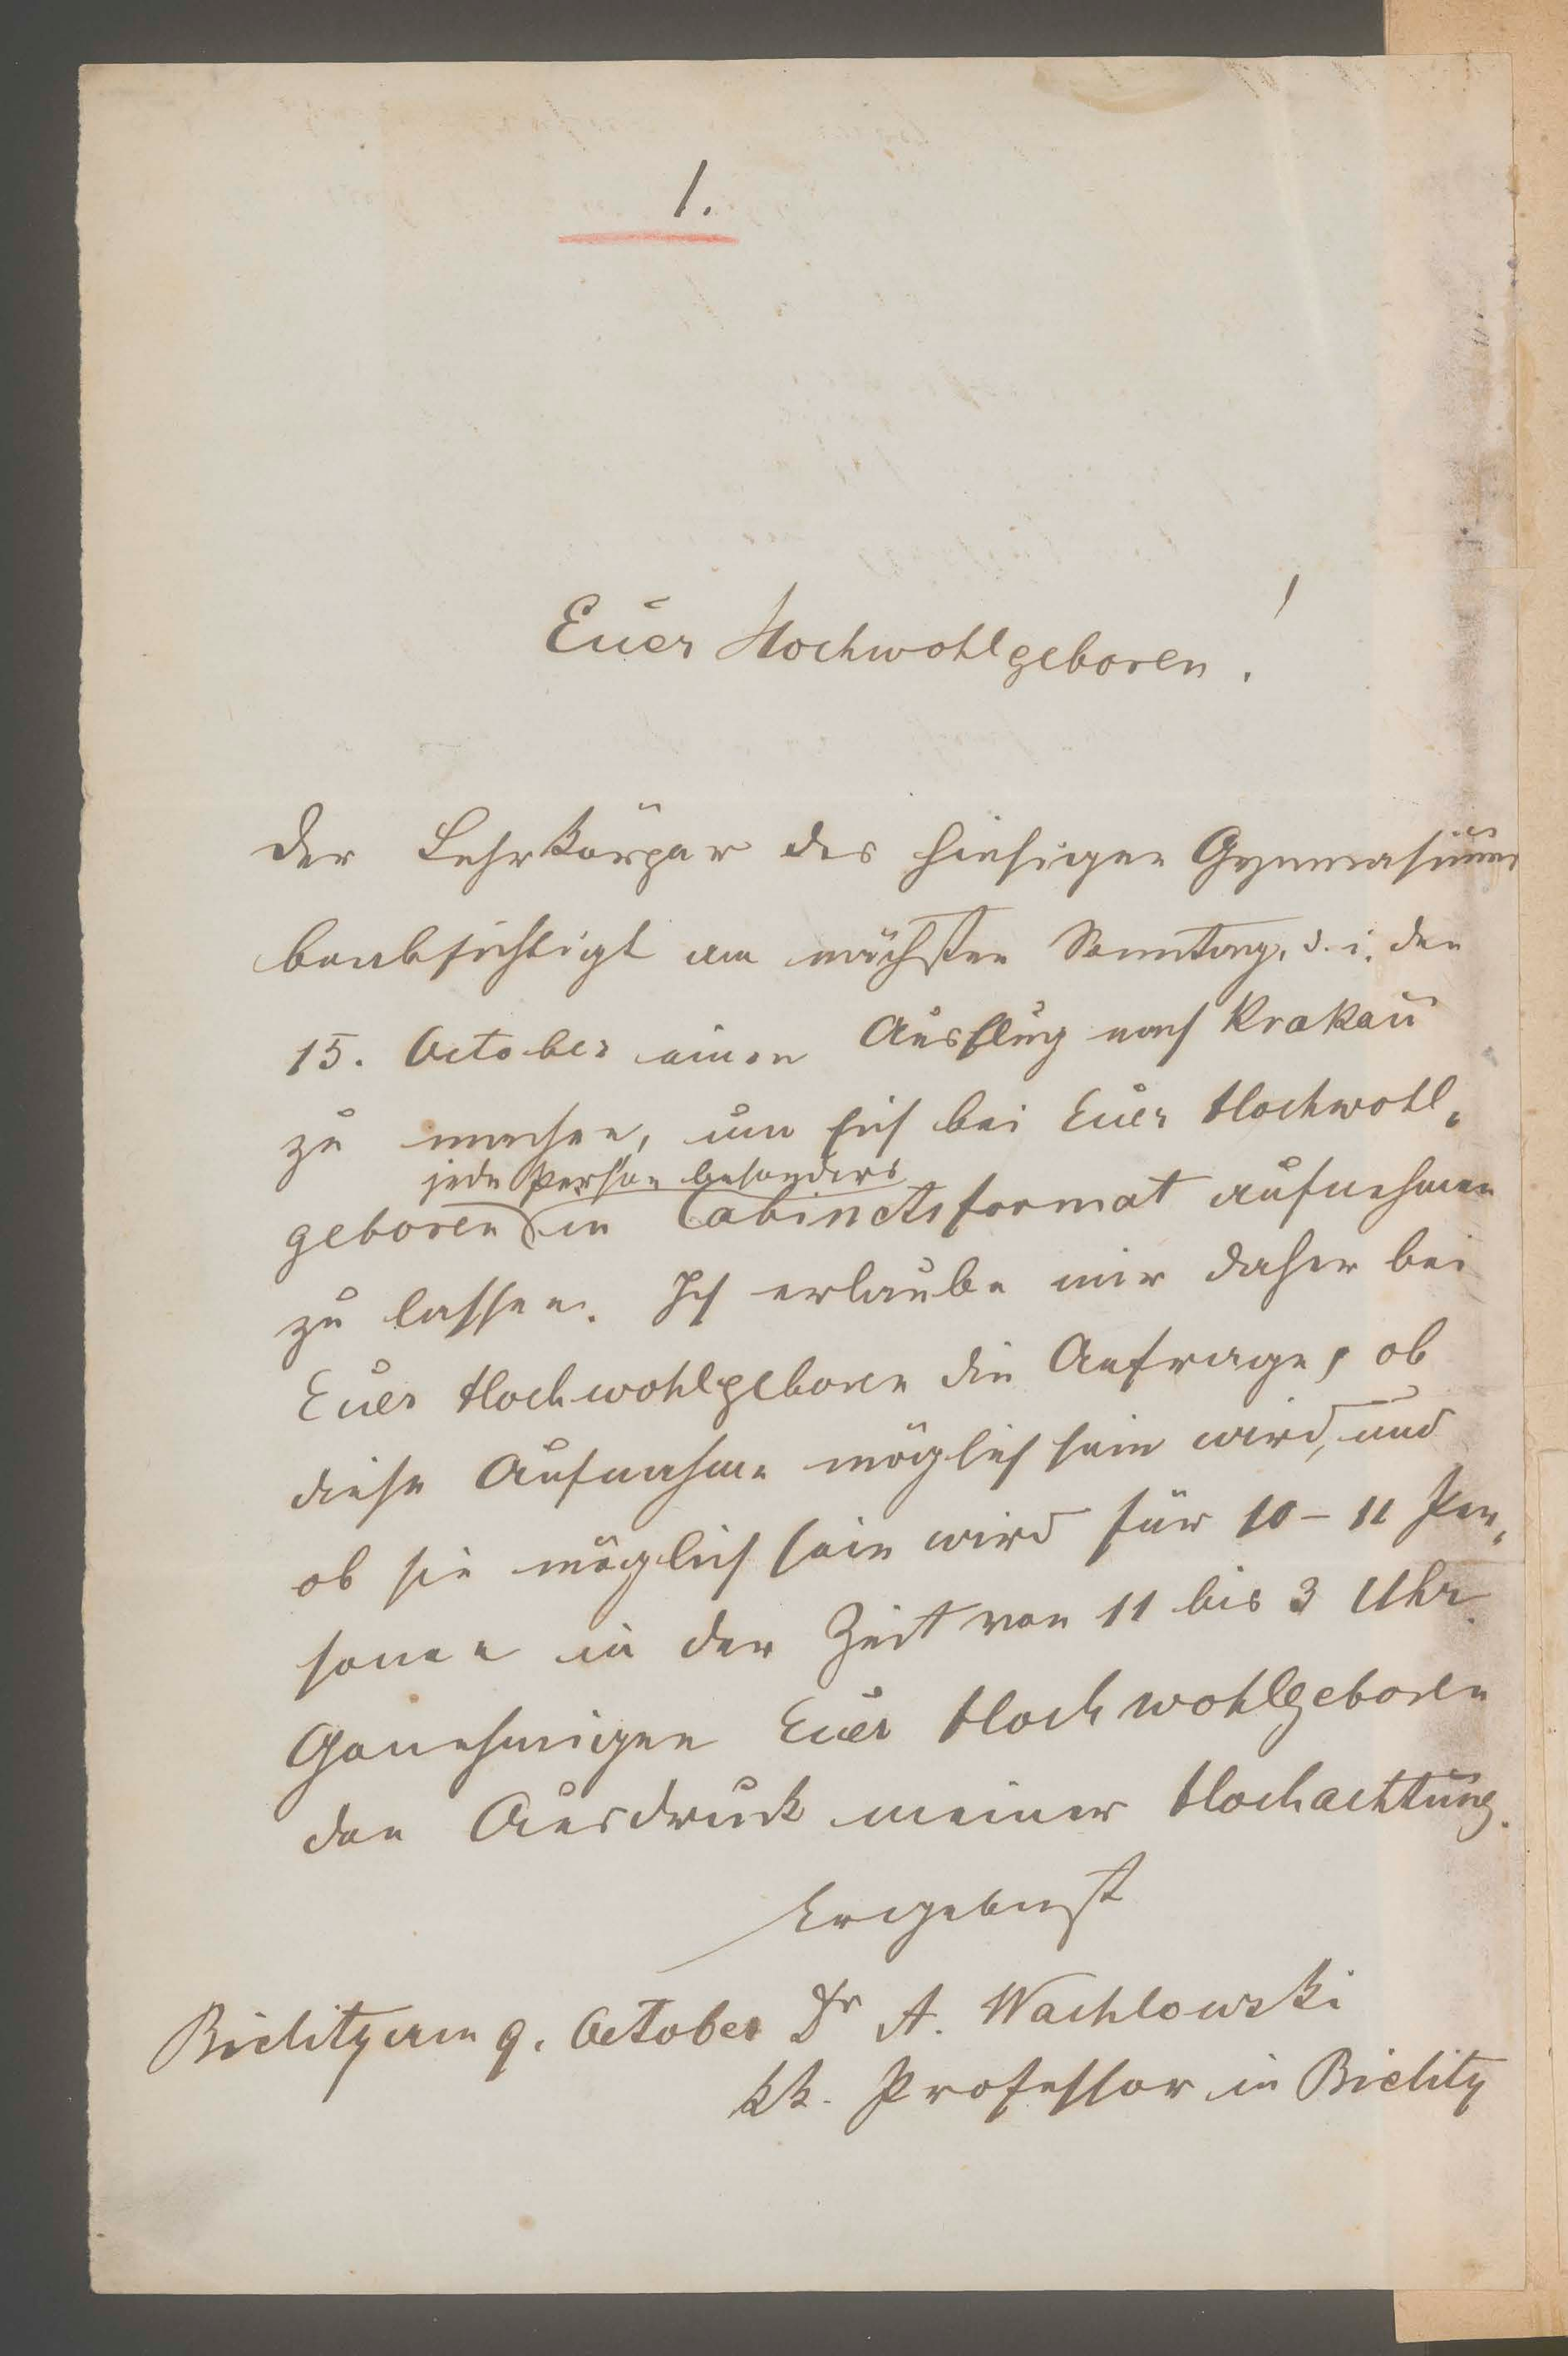 1.
Euer Hochwohlgeboren!
Der Lehrkörper des hiesigen Gymnasiums
beabsichtigt am nächsten Sonntag, d. i. den
15. October einen Ausflug nach Krakau
zu machen, um sich bei Euer Hochwohl-
jede Person besonders
geboren in Cabinetsformat aufnehmen
zu lassen. Ich erlaube mir daher bei
Euer Hochwohlgeboren die Anfrage, ob
diese Aufnahme möglich sein wird, und
ob sie möglich sein wird für 10-11 Per-
sonen in der Zeit von 11 bis 3 Uhr.
Genehmigen Euer Hochwohlgeboren
den Ausdruck meiner Hochachtung.
Ergebenst
Bielitz am 9. October Dr A. Wachlowski
kk. Professor in Bielitz